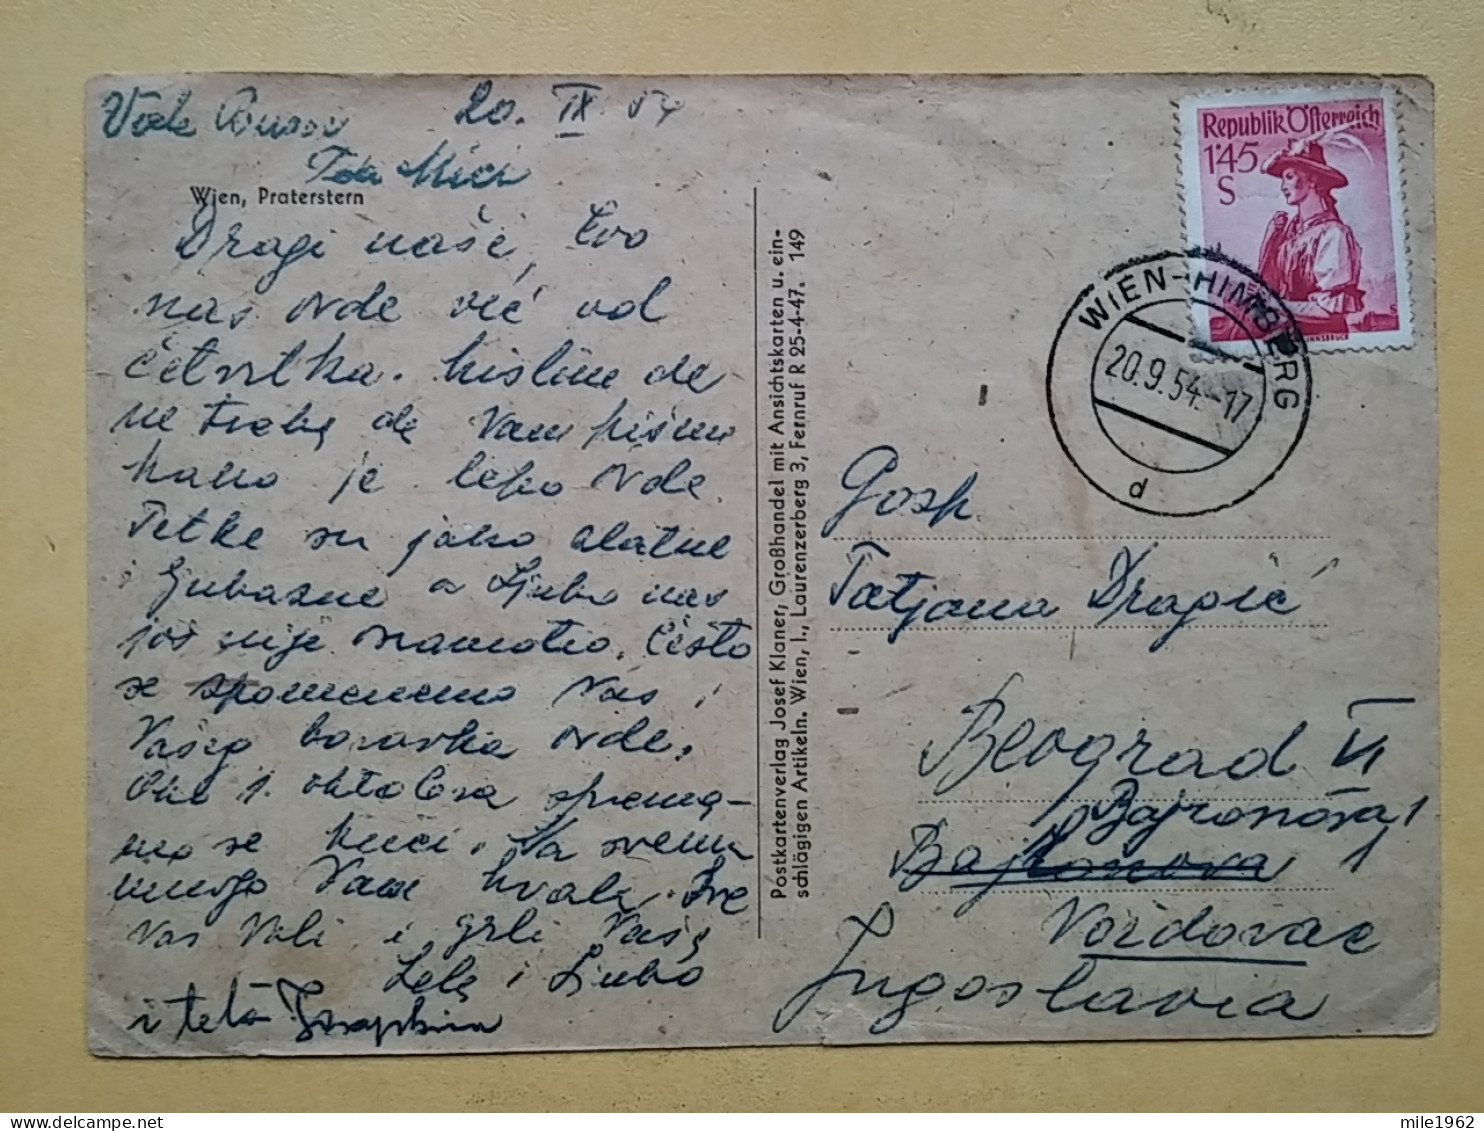 20. IX 54
Teta Mici
Wien, Praterstern
Dragi naši, Evo
nas ovde već od
četvrtka. Mislim da
ne treba da Vam pišem
kako je lepo ovde.
Tetke su jako zlatne
i ljubazne a Ljubo nas
još nije namotao. Često
se spomenemo Vas i
Vašeg boravka ovde.
Oko 1. oktobra sprema-
mo se kući. Na svemu
mnogo Vam hvala. Sve
Vas voli i grli Vaša
Lela i Ljubo
i teta Josephina
Postkartenverlag Josef Klaner, Großhandel mit Ansichtskarten u. ein-
schlägigen Artikeln. Wien, I., Laurenzerberg 3, Fernruf R 25-4-47. 149
Republik Österreich
1'45
S
INNSBRUCK
WIEN-HIMBERG
20.9.54.-17
d
Gosp.
Tatjana Dragić
Beograd VI
Bajronova 1
Bajronova 1
Voždovac
Jugoslavia
mile1962